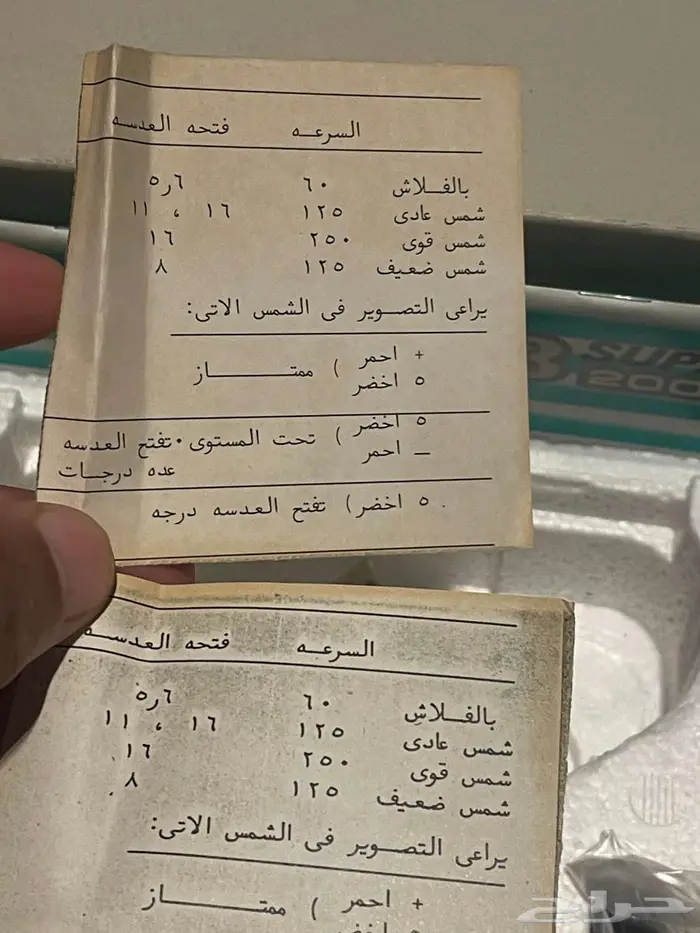 السرعـه فتحه العدسـه
بالفـلاش ٦٠ ٥ر٦
شمس عادى ١٢٥ ١٦ ، ١١
شمس قوى ٢٥٠ ١٦
شمس ضعيف ١٢٥ ٨
يراعى التصـوير فى الشمس الاتى:
+ احمر
٥ اخضر ) ممتـــاز
٥ اخضر ) تحت المستوى ٠ تفتح العدسه
— احمر عده درجـات
٥ اخضر) تفتح العدسه درجه
السرعـه فتحه العدسـه
بالفـلاش ٦٠ ٥ر٦
شمس عادى ١٢٥ ١٦ ، ١١
شمس قوى ٢٥٠ ١٦
شمس ضعيف ١٢٥ ٨
يراعى التصـوير فى الشمس الاتى:
+ احمر ) ممتـــاز
اخضر
SUP
200
حراج